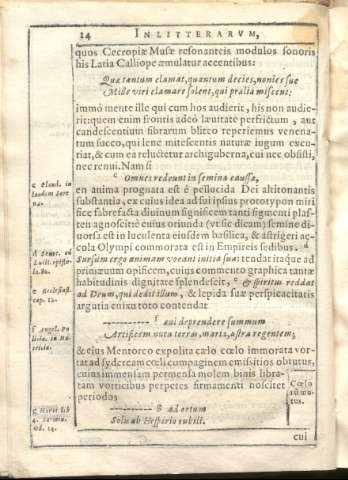 14 IN LITTERARVM,
quos Cecropiæ Musæ resonanteis modulos sonoris
his Latia Calliope æmulatur accentibus:
Quæ tantum clamat, quantum decies, nonies sue
Mille viri clamare solent, qui prælia miscent:
immò mente ille qui cum hos audierit, his non audie-
rit: quem enim frontis adeò lauitate perfrictum, aut
candescentium fibrarum bliteo reperiemus venena-
tum succo, qui lene mitescentis naturæ iugum excu-
tiat, & cum ea reluctetur archiguberna, cui nec obsisti,
nec renui. Nam si
c Omnes redeunt in semina caussæ,
en anima prognata est è pellucida Dei altitonantis
substantia, ex cuius idea ad sui ipsius prototypon miri
fice fabrefacta diuinum significem tanti figmenti plas-
ten agnoscitè cuius oriunda (vt sic dicam) semine di-
uorsa est in luculenta eiusdem basilica, & astrigeri ac-
cola Olympi commorata est in Empireis sedibus. d
Sursum ergo animam vocant initia sua: tendat itaque ad
primæuum opificem, cuius commento graphica tantæ
habitudinis dignitate splendescit, e & spiritus reddat
ad Deum, qui dedit illum, & lepida suæ perspicacitatis
arguria enixu toto contendat
f cui deprendere summum
Artificem nota terra, mari, astra regentem;
& eius Mentoreo expolita cælo cœlo immorata vor-
tat ad sydeream cœli compaginem emissitios obtutus,
cuius immensam permensa molem binis libra-
tam vorticibus perpetes firmamenti noscitet
periodos
g ad ortum
Solis ab Hesperio cubili.
cui
c Claud. in
laudem Sere
næ.
d Senec. ad
Lucil. episto
la.
e Ecclesiast.
cap. 12.
f Angel. Po
litia. in Nu
tricia.
g Horat. lib
4. Carmin.
Od. 14.
Cœlo